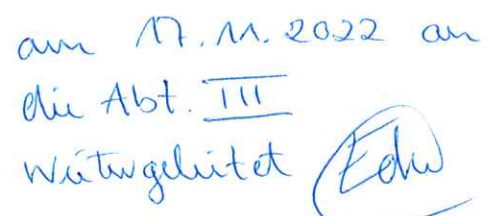 am 17.11.2022 an
die Abt. III
weitergeleitet